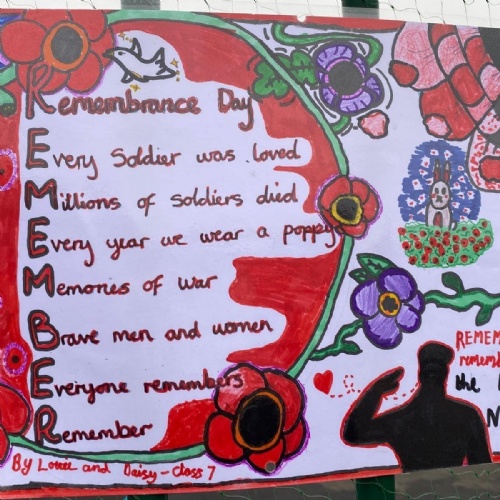 REMEMBER
Remembrance Day
Every Soldier was loved
Millions of soldiers died
Every year we wear a poppy
Memories of war
Brave men and women
Everyone remembers
Remember
By Lottie and Daisy - Class 7
the